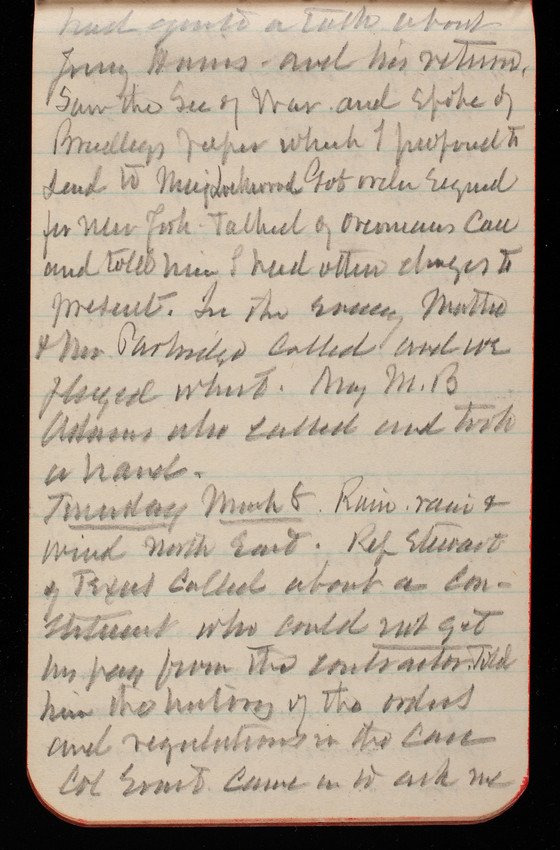 had quite a talk about
Harris - and his return.
Saw the Sec of War. and spoke of
Bradleys paper which I proposed to
send to Maj Lockwood Got order signed
for New York. Talked of Case
and told him I had other charges to
present. In the evening Mother
& Mr Partridge called and we
played whist. Maj M. B
Adams also called and took
a hand.
Tuesday March 8. Rain. rain &
wind North East. Rep Stewart
of Texas called about a Con-
stituent who could not get
his pay from the contractor. Told
him the history of the orders
and regulations in the case
Col came in to ask me